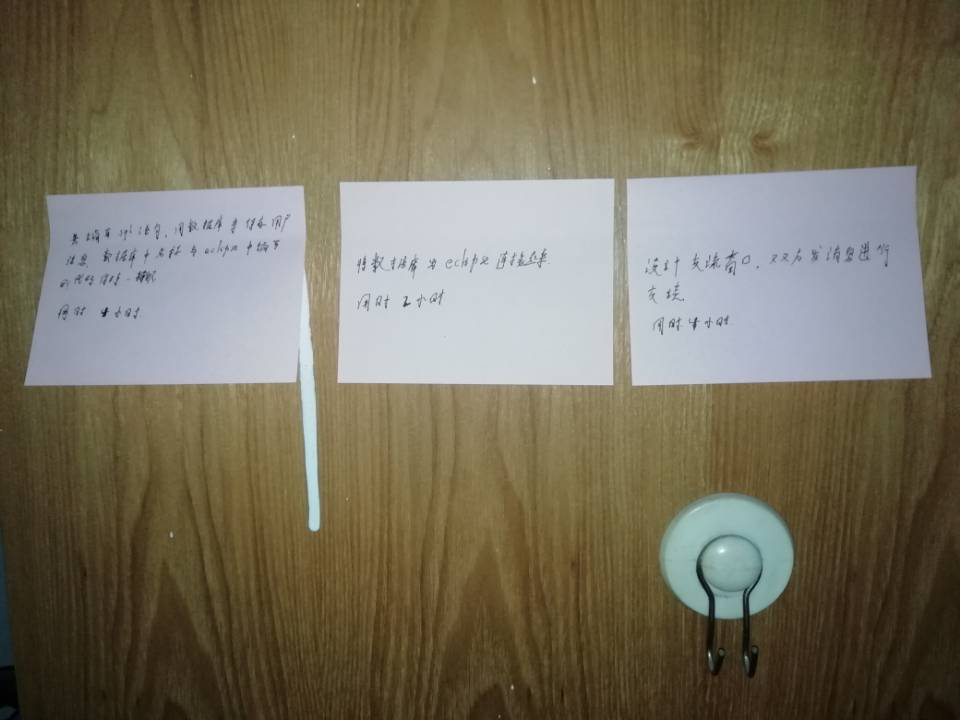 编写sql语句,用数据库来储存用户
信息,数据库中名称与eclipse中编写
的代码保持一致
用时 4小时
将数据库与eclipse连接起来
用时 2小时
设计交流窗口,双方发消息进行
交谈
用时 4小时